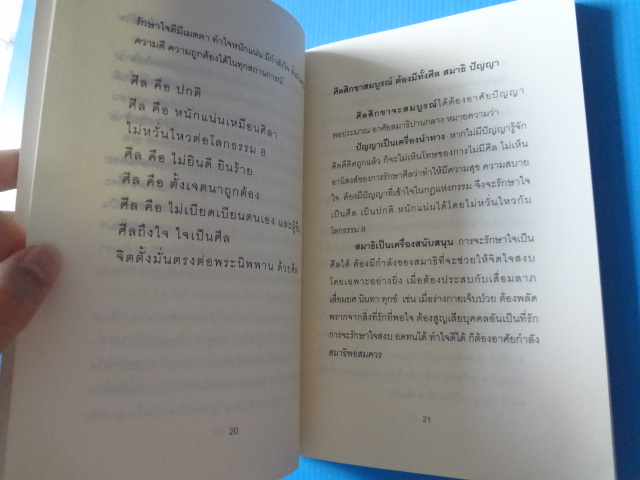 รักษาใจดีมีเมตตา ทำใจหนักแน่น มีกำลังใจ
ความดี ความถูกต้องได้ในทุกสถานการณ์
ศีล คือ ปกติ
ศีล คือ หนักแน่นเหมือนศิลา
ไม่หวั่นไหวต่อโลกธรรม 8
ศีล คือ ไม่ยินดี ยินร้าย
ศีล คือ ตั้งเจตนาถูกต้อง
ศีล คือ ไม่เบียดเบียนตนเอง และผู้อื่น
ศีลถึงใจ ใจเป็นศีล
จิตตั้งมั่นตรงต่อพระนิพพาน ด้วยศีล
20
ศีลสิกขาสมบูรณ์ ต้องมีทั้งศีล สมาธิ ปัญญา
ศีลสิกขาจะสมบูรณ์ได้ต้องอาศัยปัญญา
พอประมาณ อาศัยสมาธิปานกลาง หมายความว่า
ปัญญาเป็นเครื่องนำทาง หากไม่มีปัญญารู้จัก
คิดดีคิดถูกแล้ว ก็จะไม่เห็นโทษของการไม่มีศีล ไม่เห็น
อานิสงส์ของการรักษาศีลว่าทำให้มีความสุข ความสบาย
ใจ ต้องมีปัญญาที่เข้าใจในกฎแห่งกรรม จึงจะรักษาใจ
เป็นศีล เป็นปกติ หนักแน่นได้โดยไม่หวั่นไหวกับ
โลกธรรม 8
สมาธิเป็นเครื่องสนับสนุน การจะรักษาใจเป็น
ศีลได้ ต้องมีกำลังของสมาธิที่จะช่วยให้จิตใจสงบ
โดยเฉพาะอย่างยิ่ง เมื่อต้องประสบกับเสื่อมลาภ
เสื่อมยศ นินทา ทุกข์ เช่น เมื่อร่างกายเจ็บป่วย ต้องพลัด
พรากจากสิ่งที่รักที่พอใจ ต้องสูญเสียบุคคลอันเป็นที่รัก
การจะรักษาใจสงบ อดทนได้ ทำใจดีได้ ก็ต้องอาศัยกำลัง
สมาธิพอสมควร
21